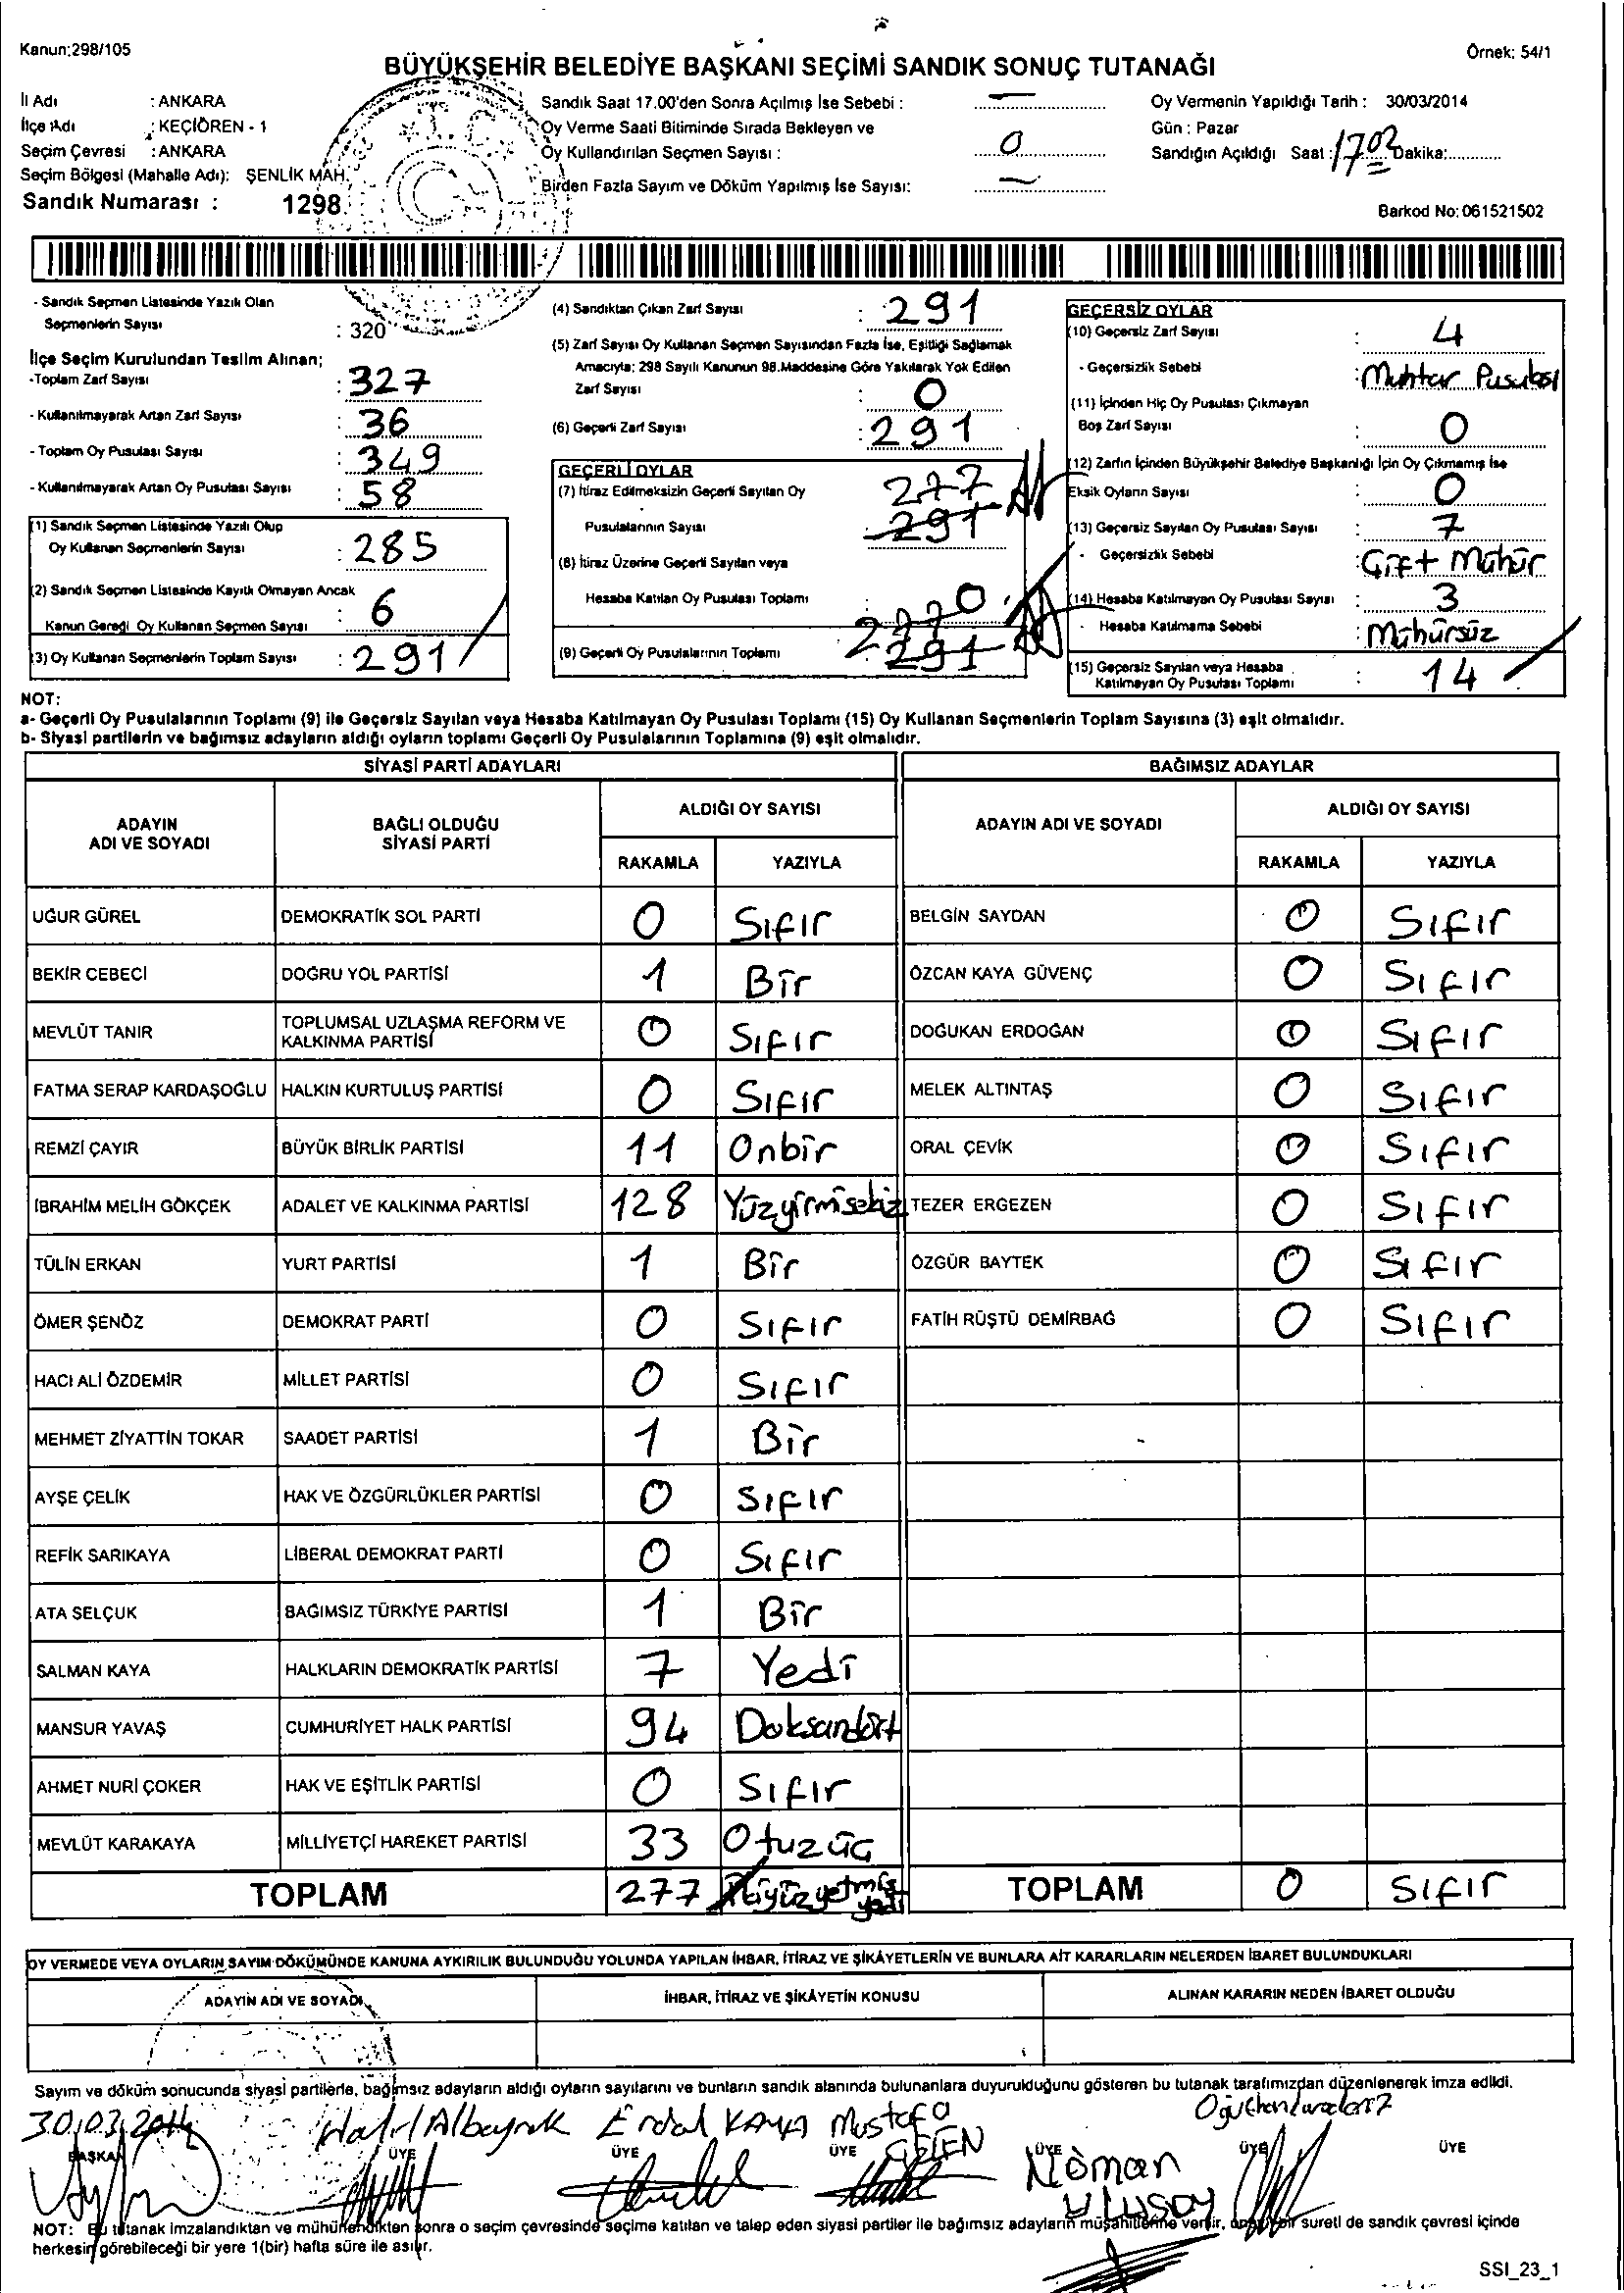 Kanun:298/105
Örnek: 54/1
BÜYÜKŞEHİR BELEDİYE BAŞKANI SEÇİMİ SANDIK SONUÇ TUTANAĞI
İl Adı : ANKARA
İlçe Adı : KEÇİÖREN - 1
Seçim Çevresi : ANKARA
Seçim Bölgesi (Mahalle Adı): ŞENLİK MAH.
Sandık Numarası : 1298
Sandık Saat 17.00'den Sonra Açılmış İse Sebebi :
Oy Verme Saati Bitiminde Sırada Bekleyen ve
Oy Kullandırılan Seçmen Sayısı : 0
Birden Fazla Sayım ve Döküm Yapılmış İse Sayısı:
Oy Vermenin Yapıldığı Tarih : 30/03/2014
Gün : Pazar
Sandığın Açıldığı Saat : 17 02 Dakika:
Barkod No: 061521502
- Sandık Seçmen Listesinde Yazılı Olan
Seçmenlerin Sayısı : 320
İlçe Seçim Kurulundan Teslim Alınan;
-Toplam Zarf Sayısı : 327
- Kullanılmayarak Artan Zarf Sayısı : 36
- Toplam Oy Pusulası Sayısı : 349
- Kullanılmayarak Artan Oy Pusulası Sayısı : 58
(1) Sandık Seçmen Listesinde Yazılı Olup
Oy Kullanan Seçmenlerin Sayısı : 285
(2) Sandık Seçmen Listesinde Kayıtlı Olmayan Ancak
Kanun Gereği Oy Kullanan Seçmen Sayısı : 6
(3) Oy Kullanan Seçmenlerin Toplam Sayısı : 291
(4) Sandıktan Çıkan Zarf Sayısı : 291
(5) Zarf Sayısı Oy Kullanan Seçmen Sayısından Fazla İse, Eşitliği Sağlamak
Amacıyla; 298 Sayılı Kanunun 98.Maddesine Göre Yakılarak Yok Edilen
Zarf Sayısı : 0
(6) Geçerli Zarf Sayısı : 291
GEÇERLİ OYLAR
(7) İtiraz Edilmeksizin Geçerli Sayılan Oy 277
Pusulalarının Sayısı 291
(8) İtiraz Üzerine Geçerli Sayılan veya
Hesaba Katılan Oy Pusulası Toplamı 0
277
(9) Geçerli Oy Pusulalarının Toplamı 291
GEÇERSİZ OYLAR
(10) Geçersiz Zarf Sayısı : 4
- Geçersizlik Sebebi : Muhtar Pusulası
(11) İçinden Hiç Oy Pusulası Çıkmayan
Boş Zarf Sayısı : 0
(12) Zarfın İçinden Büyükşehir Belediye Başkanlığı İçin Oy Çıkmamış İse
Eksik Oyların Sayısı : 0
(13) Geçersiz Sayılan Oy Pusulası Sayısı : 7
- Geçersizlik Sebebi : Çift Mühür
(14) Hesaba Katılmayan Oy Pusulası Sayısı : 3
- Hesaba Katılmama Sebebi : Mühürsüz
(15) Geçersiz Sayılan veya Hesaba
Katılmayan Oy Pusulası Toplamı : 14
NOT:
a- Geçerli Oy Pusulalarının Toplamı (9) ile Geçersiz Sayılan veya Hesaba Katılmayan Oy Pusulası Toplamı (15) Oy Kullanan Seçmenlerin Toplam Sayısına (3) eşit olmalıdır.
b- Siyasi partilerin ve bağımsız adayların aldığı oyların toplamı Geçerli Oy Pusulalarının Toplamına (9) eşit olmalıdır.
SİYASİ PARTİ ADAYLARI
ADAYIN
ADI VE SOYADI
BAĞLI OLDUĞU
SİYASİ PARTİ
ALDIĞI OY SAYISI
RAKAMLA YAZIYLA
UĞUR GÜREL DEMOKRATİK SOL PARTİ 0 Sıfır
BEKİR CEBECİ DOĞRU YOL PARTİSİ 1 Bir
MEVLÜT TANIR TOPLUMSAL UZLAŞMA REFORM VE
KALKINMA PARTİSİ 0 Sıfır
FATMA SERAP KARDAŞOĞLU HALKIN KURTULUŞ PARTİSİ 0 Sıfır
REMZİ ÇAYIR BÜYÜK BİRLİK PARTİSİ 11 Onbir
İBRAHİM MELİH GÖKÇEK ADALET VE KALKINMA PARTİSİ 128 Yüzyirmisekiz
TÜLİN ERKAN YURT PARTİSİ 1 Bir
ÖMER ŞENÖZ DEMOKRAT PARTİ 0 Sıfır
HACI ALİ ÖZDEMİR MİLLET PARTİSİ 0 Sıfır
MEHMET ZİYATTİN TOKAR SAADET PARTİSİ 1 Bir
AYŞE ÇELİK HAK VE ÖZGÜRLÜKLER PARTİSİ 0 Sıfır
REFİK SARIKAYA LİBERAL DEMOKRAT PARTİ 0 Sıfır
ATA SELÇUK BAĞIMSIZ TÜRKİYE PARTİSİ 1 Bir
SALMAN KAYA HALKLARIN DEMOKRATİK PARTİSİ 7 Yedi
MANSUR YAVAŞ CUMHURİYET HALK PARTİSİ 94 Doksandört
AHMET NURİ ÇOKER HAK VE EŞİTLİK PARTİSİ 0 Sıfır
MEVLÜT KARAKAYA MİLLİYETÇİ HAREKET PARTİSİ 33 Otuzüç
TOPLAM 277 İkiyüzyetmiş
yedi
BAĞIMSIZ ADAYLAR
ADAYIN ADI VE SOYADI
ALDIĞI OY SAYISI
RAKAMLA YAZIYLA
BELGİN SAYDAN 0 Sıfır
ÖZCAN KAYA GÜVENÇ 0 Sıfır
DOĞUKAN ERDOĞAN 0 Sıfır
MELEK ALTINTAŞ 0 Sıfır
ORAL ÇEVİK 0 Sıfır
TEZER ERGEZEN 0 Sıfır
ÖZGÜR BAYTEK 0 Sıfır
FATİH RÜŞTÜ DEMİRBAĞ 0 Sıfır
TOPLAM 0 Sıfır
OY VERMEDE VEYA OYLARIN SAYIM DÖKÜMÜNDE KANUNA AYKIRILIK BULUNDUĞU YOLUNDA YAPILAN İHBAR, İTİRAZ VE ŞİKÂYETLERİN VE BUNLARA AİT KARARLARIN NELERDEN İBARET BULUNDUKLARI
ADAYIN ADI VE SOYADI İHBAR, İTİRAZ VE ŞİKÂYETİN KONUSU ALINAN KARARIN NEDEN İBARET OLDUĞU
Sayım ve döküm sonucunda siyasi partilerle, bağımsız adayların aldığı oyların sayılarını ve bunların sandık alanında bulunanlara duyurulduğunu gösteren bu tutanak tarafımızdan düzenlenerek imza edildi.
30.03.2014 Halil Albayrak Erdal KAYA Mustafa
BAŞKAN ÜYE ÜYE ÜYE ÜYE ÜYE ÜYE
Noman
ULUSOY
NOT: Bu tutanak imzalandıktan ve mühürlendikten sonra o seçim çevresinde seçime katılan ve talep eden siyasi partiler ile bağımsız adayların müşahitlerine verilir, onaylı bir sureti de sandık çevresi içinde
herkesin görebileceği bir yere 1(bir) hafta süre ile asılır.
SSI_23_1